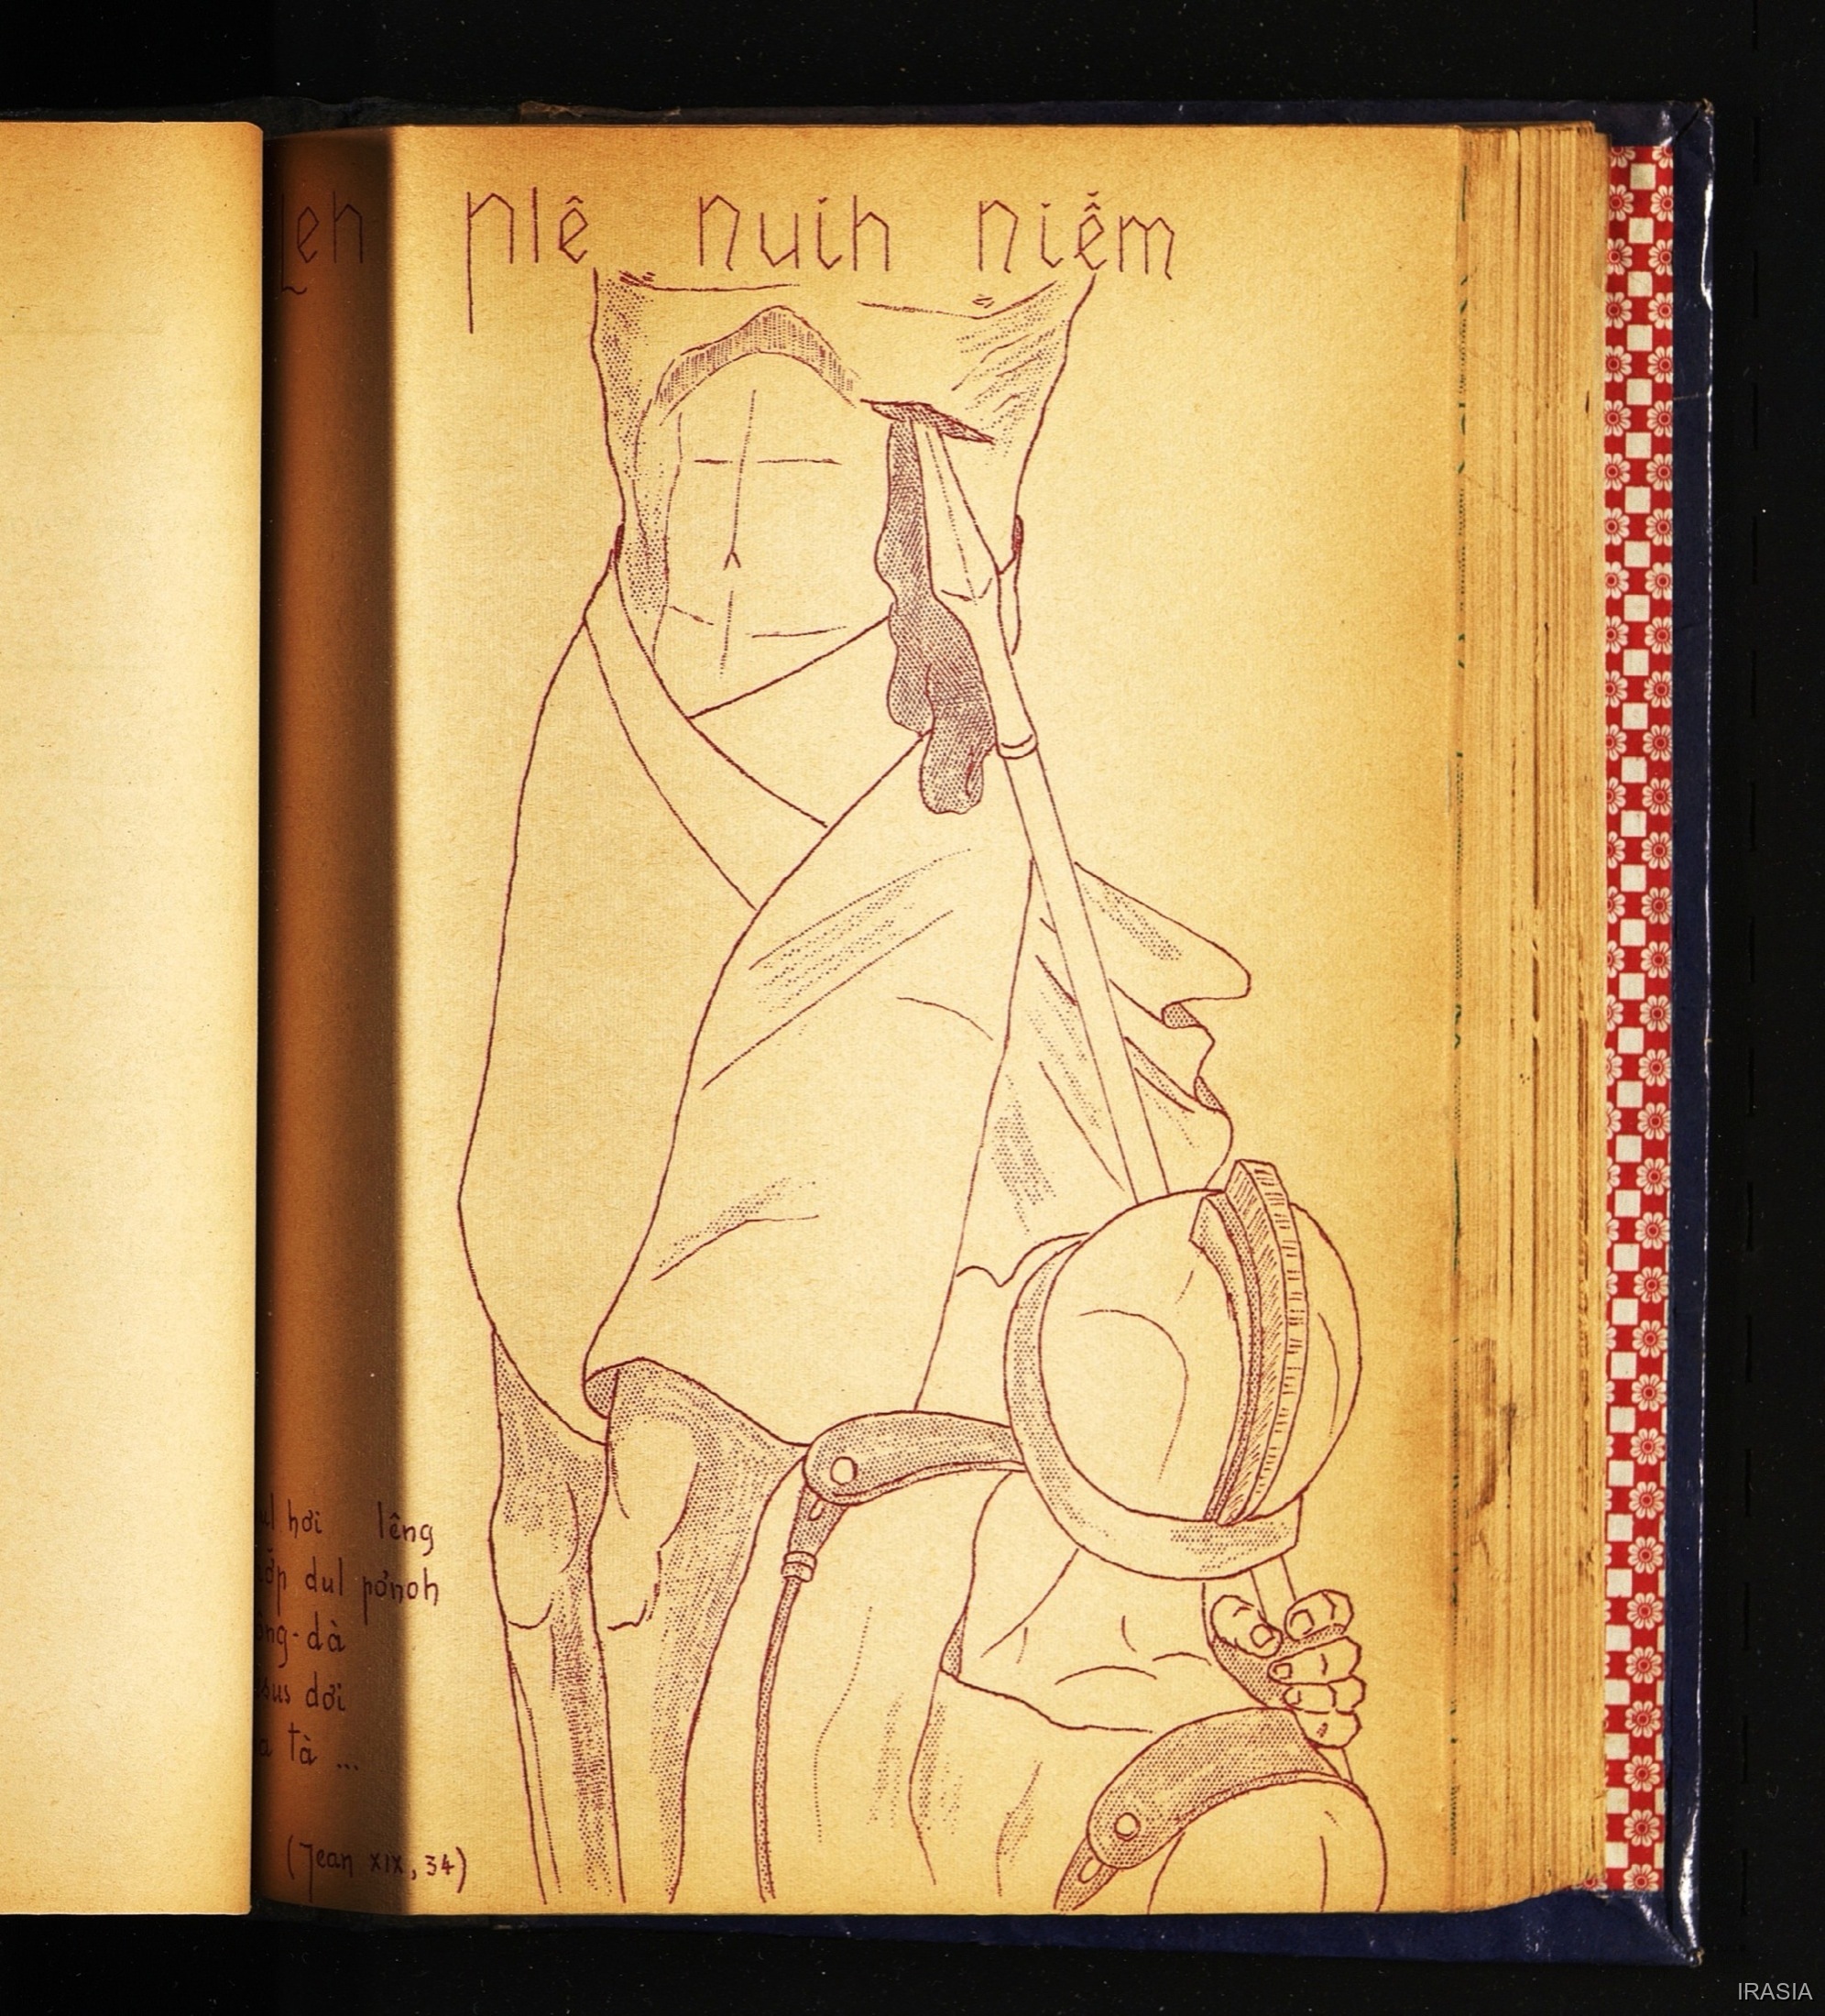 Leh plê nuih niễm
hơi lêng
dul pơnoh
dà
dơi
tà ...
(Jean XIX, 34)
IRASIA